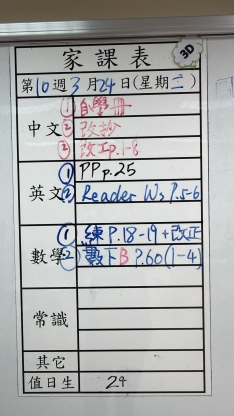 家課表
3D
第10週3月24日(星期二)
中文
①自學冊
②改抄
③改工P.1-8
英文
①PP p.25
②Reader Ws P.5-6
數學
①練P.18-19+改正
②數下B P.60(1-4)
常識
其它
值日生 24